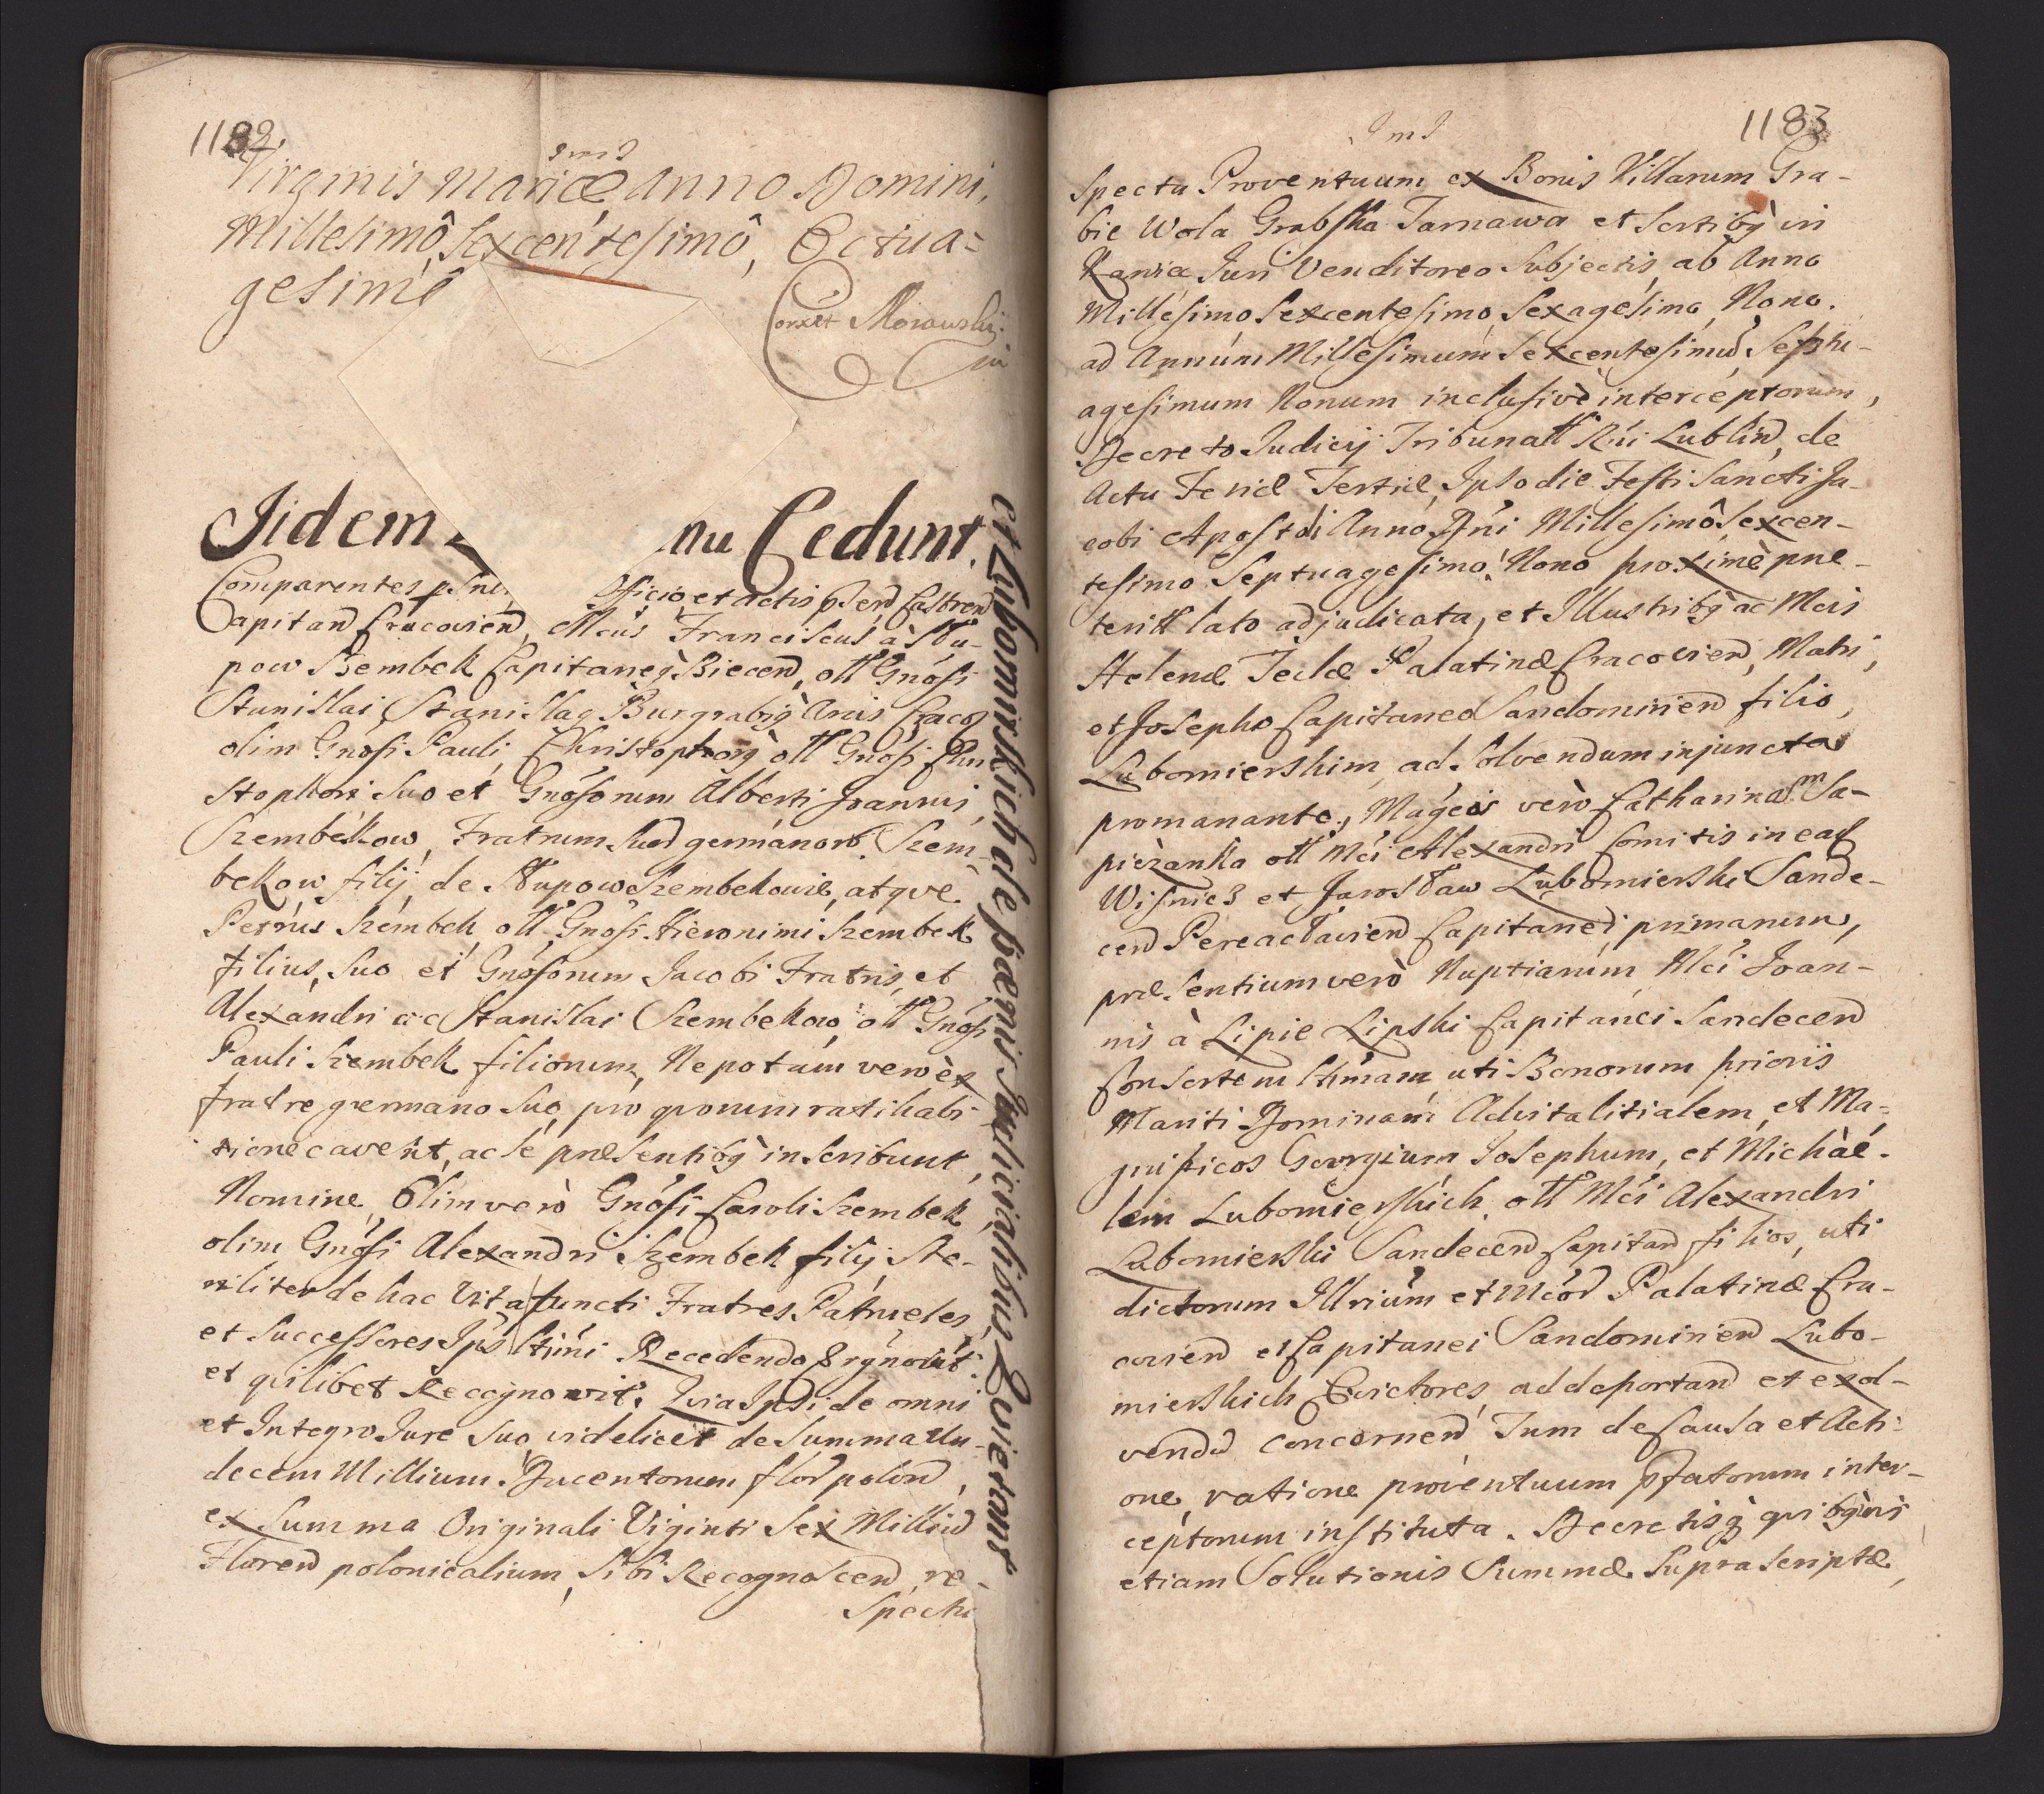 1182
Virginis Mariæ Anno Domini,
Millesimô, Sexcentesimô, Octua=
gesimô
Corrxit Morawski
Jidem nu Cedunt.
et Lubomirskich de pænis Judicialibus Quietant
Comparentes pSne. Officio et actis pSend Castrend
Capitand Cracoviend, Mcus Franciscus à Słu-
pow Szembek Capitaneq Biecend, olt Gnósi
Stanislai, Stanislaq Burgrabiq Arcis Craco
olim Gnósi Pauli, Christophorq olt Gnósi Chri
stophori Suo et Gnósorum Alberti Joannis,
Szembékow, Fratrum Suod germánord. Szem-
bekow filij, de Słupow Szembekowie, atqve
Petrus Szémbek, olt Gnósi Hieronimi Szembek
filius, Suo et Gnósorum Jacobi Fratris, et
Alexándri ac Stanislai Szembékow, olt Gnósi
Pauli Szembek filiorum, Nepotúm verò èx
fratre germano Suo, pro qvorum ratihabi-
tione cavent, ac se præsentibq inscribunt,
Nomine, Olim verò Gnósi Caroli Szembek
olim Gnósi Alexandri Szembek filij, Ste-
riliter de hac Vita functi Fratres Patrueles,
et Successores Ipsi ltimi Recedendo &rgnórút.
et qvilibet Recognovit. Qvia Ipsi de omni
et Integro Jure Suo, videlicet de Summa Un-
decem Millium Ducentorum flod polond,
ex Summa Originali Viginti Sex Milliud
Florend polonicalium, Sibi Recognoscend, re-
Spectu
1183
Spectu Proventuum ex Bonis Villarum Gra-
bie Wola Grabska Tarnawa et Sortibq in
Kawia, Juri Venditoreo Subjectis, ab Anno
Millesimo Sexcentesimo, Sexagesimo, Nono.
ad Annúm Millesimum Sexcentesimud, Septu-
agesimum Nonum inclusivè interceptorum,
Decreto Judicij Tribunalt Rni Lublind, de
Actu Feriæ Tertiæ, Ipso die Festi Sancti Ja-
cobi Apostoli Anno Dni Millesimô Sexcen-
tesimo Septuagesimo, Nono proximè præ-
teritt lato adjudicata, et Illustribq ac Mcis
Helenæ Teclæ Palatinæ Cracoviend, Matri,
et Josepho Capitaneo Sandomiriend filio,
Lubomierskim, ad Solvendum injuncta
promanante, Magcis verò Catharinam Sa-
pieżanka olt Mci Alexandri Comitis in ead
Wisnicz et Jarosław Lubomierski Sande-
cend Pereasłaviend Capitanei, primarum,
præsentium verò Nuptiarum, Mci Joan-
nis à Lipie Lipski Capitánei Sandecend
Consortem ltimam uti Bonorum prioris
Mariti Dominam Advitalitialem, et Ma-
gnificos Georgium Josephum, et Michàé-
lem Lubomierskich, olt Mci Alexandri
Lubomierski Sandecend Capitand filios, uti
dictorum Illrium et Mcód Palatinæ Cra-
coviend et Capitanei Sandomiriend Lubo-
mierskich Evictores, ad deportand et exol-
vendd concernend Tum de Causa et Acti-
one, ratione provéntuum pfatorum inter-
ceptorum instituta. Decretisq qvibqvis
etiam Solutionis Summæ Suprascriptæ,